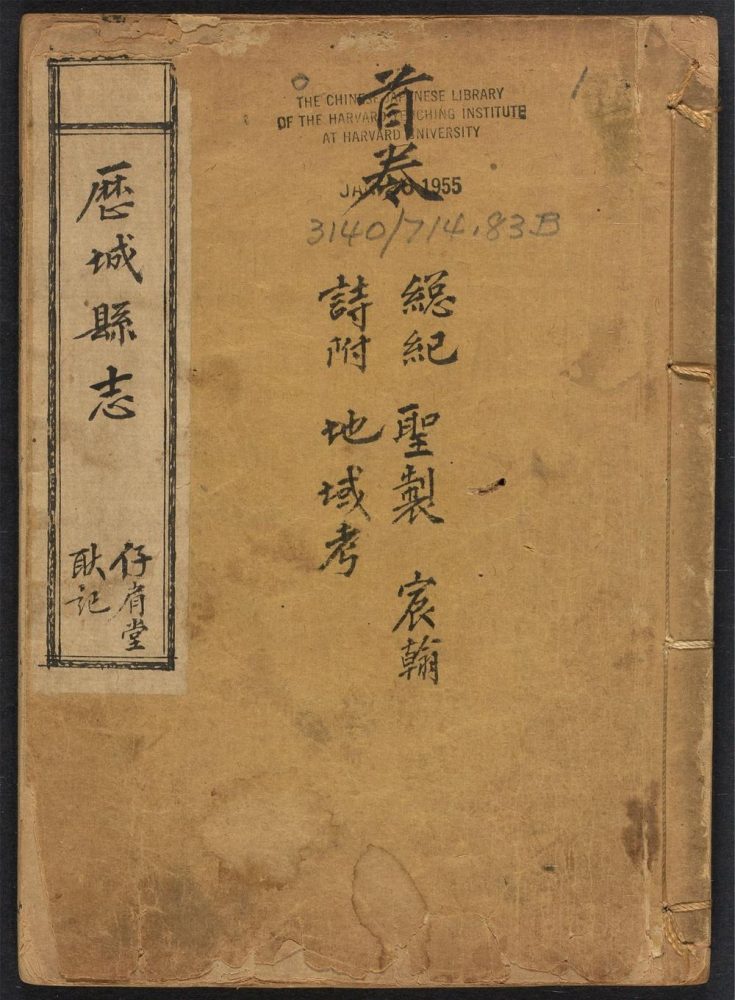 首卷
THE CHINESE-JAPANESE LIBRARY
OF THE HARVARD-YENCHING INSTITUTE
AT HARVARD UNIVERSITY
1955
3140/714.83B
1
総紀 聖製 宸翰
詩附 地域考
歷城縣志
仔肩堂
耿記